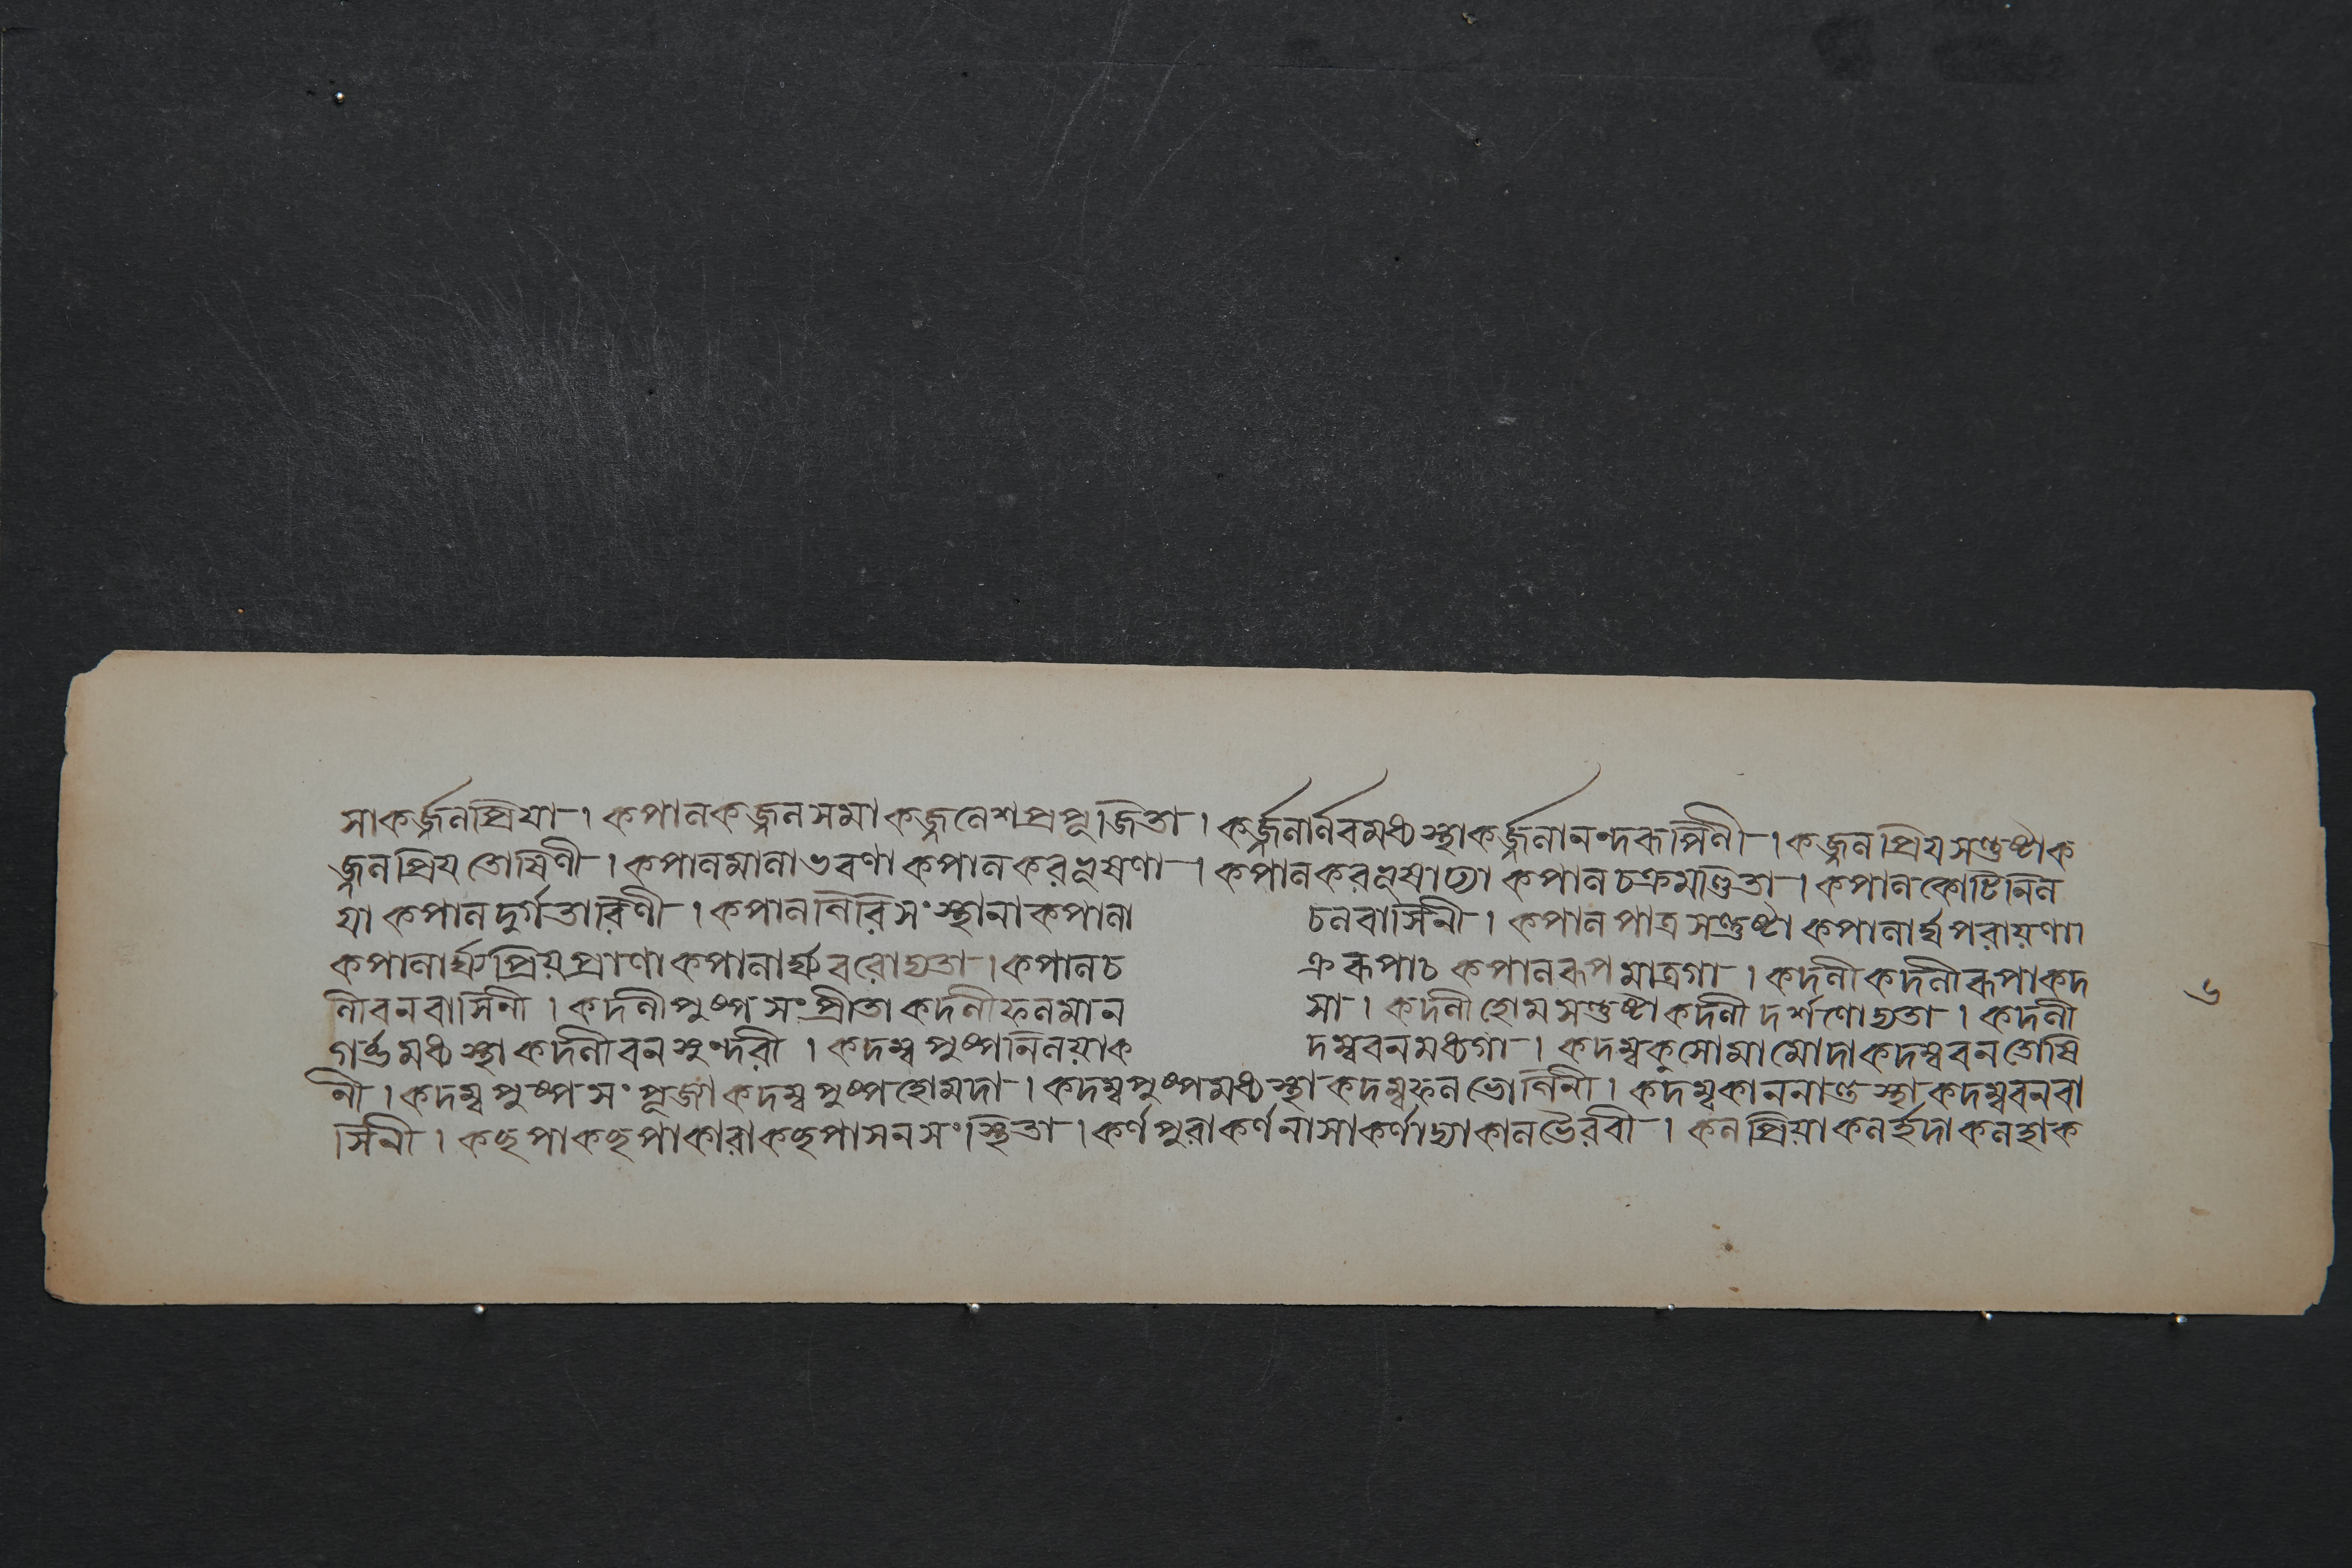 সাকর্জ্জলপ্রিয়া। কপালকজ্জলসমা কজ্জলেশপ্রপূজিতা। কর্জ্জলার্নবমধ্যস্থাকর্জ্জলানন্দরূপিণী। কজ্জলপ্রিয়সন্তুষ্টাক
জ্জলপ্রিয়তোষিণী। কপালমালাভরণা কপালকরভূষণা। কপালকরভূষাঢ্যা কপালচক্রমণ্ডিতা। কপালকোটিনিল
য়া কপালদুর্গতারিণী। কপালগিরিসংস্থানাকপালা চলবাসিনী। কপালপাত্রসন্তুষ্টা কপালার্ঘ্যপরায়ণা।
কপালার্ঘ্যপ্রিয়প্রাণাকপালার্ঘ্যবরোদ্যতা। কপালচ ক্ররূপাচ কপালরূপমাত্রগা। কদলী কদলীরূপাকদ
লীবনবাসিনী। কদলীপুষ্পসংপ্রীতাকদলীফলমান সা। কদলীহোমসন্তুষ্টাকদলীদর্শণোদ্যতা। কদলী
গর্ব্ভমধ্যস্থাকদলীবনসুন্দরী। কদম্বপুষ্পনিলয়াক দম্ববনমধ্যগা। কদম্বকুসোমামোদাকদম্ববনতোষি
নী। কদম্বপুষ্পসংপূজ্যাকদম্বপুষ্পহোমদা। কদম্বপুষ্পমধ্যস্থাকদম্বফলভোগিনী। কদম্বকাননান্তস্থাকদম্ববনবা
সিনী। কছপাকছপাকারাকছপাসনসংস্থিতা। কর্ণপুরাকর্ণনাসাকর্ণাদ্যাকালভৈরবী। কলপ্রিয়াকলহদাকলহাক
৬